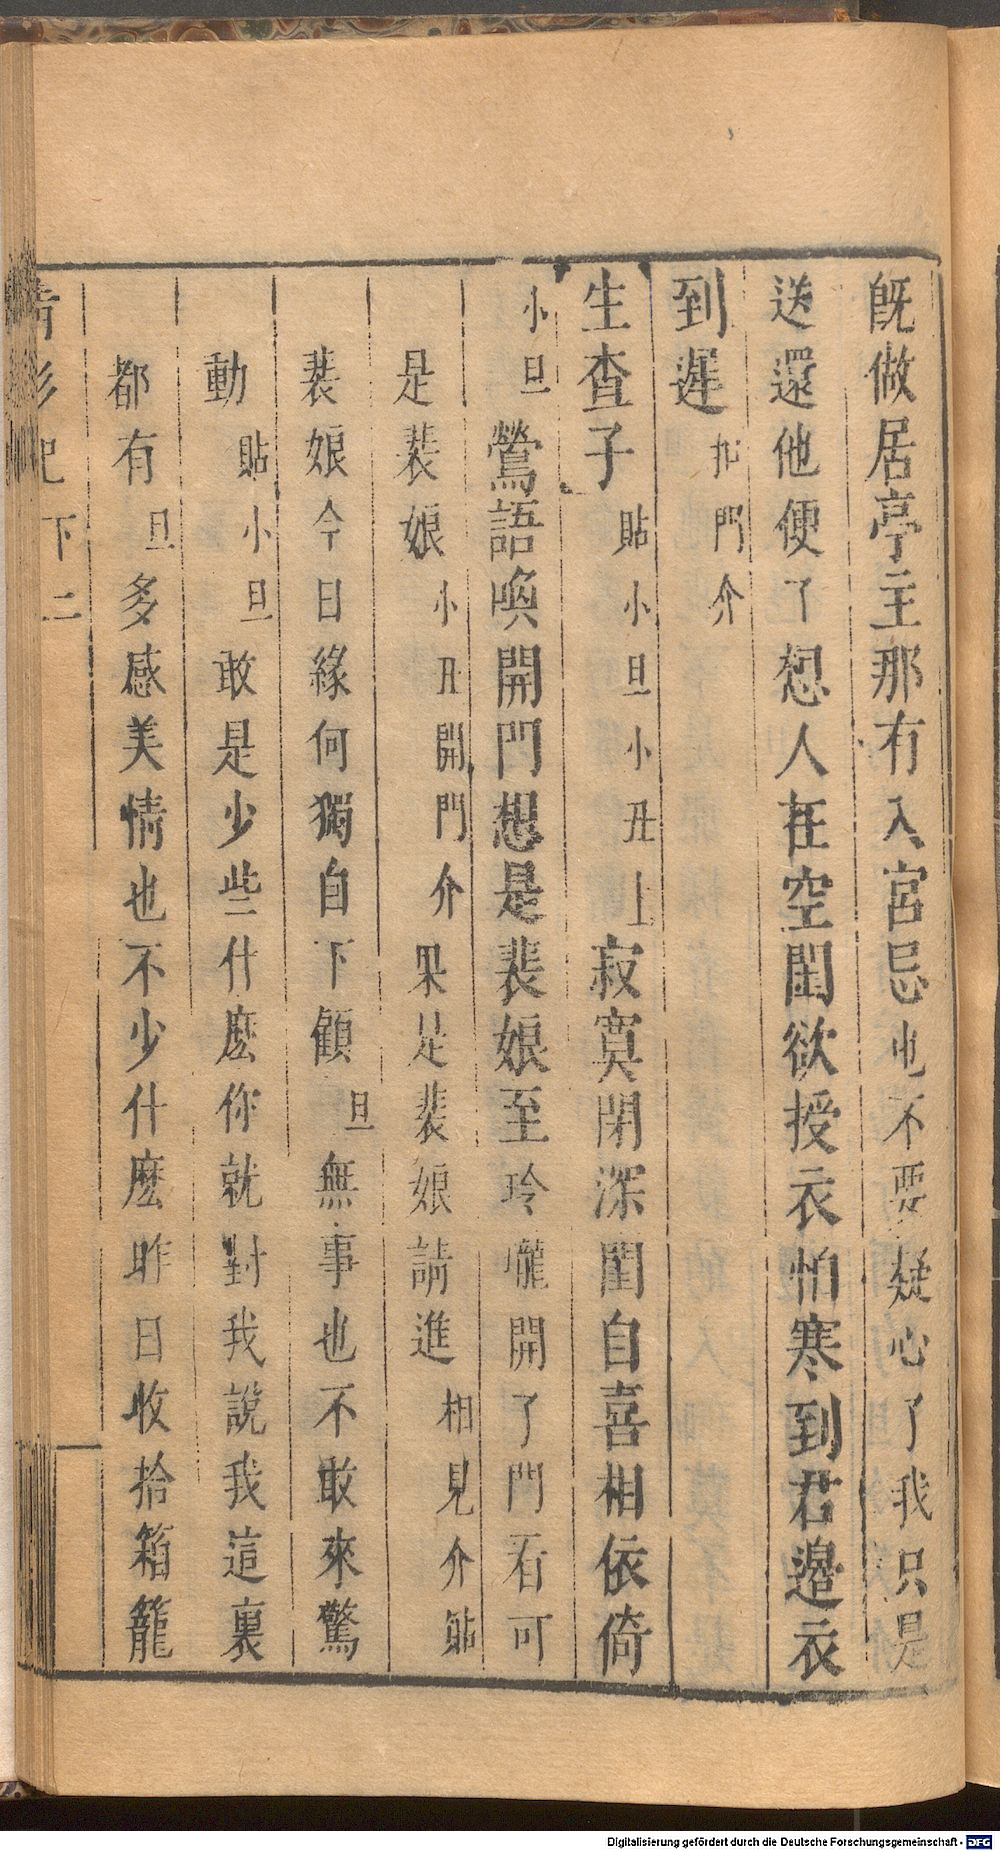 既做居亭主那有入宮忌也不要疑心了我只是
送還他便了想人在空閨欲授衣怕寒到君邊衣
到遲扣門介
生查子貼小旦小丑上寂寞閉深閨自喜相依倚
小旦鶯語喚開門想是裴娘至玲瓏開了門看可
是裴娘小丑開門介果是裴娘請進相見介貼
裴娘今日緣何獨自下顧旦無事也不敢來驚
動貼小旦敢是少些什麼你就對我說我這裏
都有旦多感美情也不少什麼昨日收拾箱籠
下二
Digitalisierung gefördert durch die Deutsche Forschungsgemeinschaft - DFG